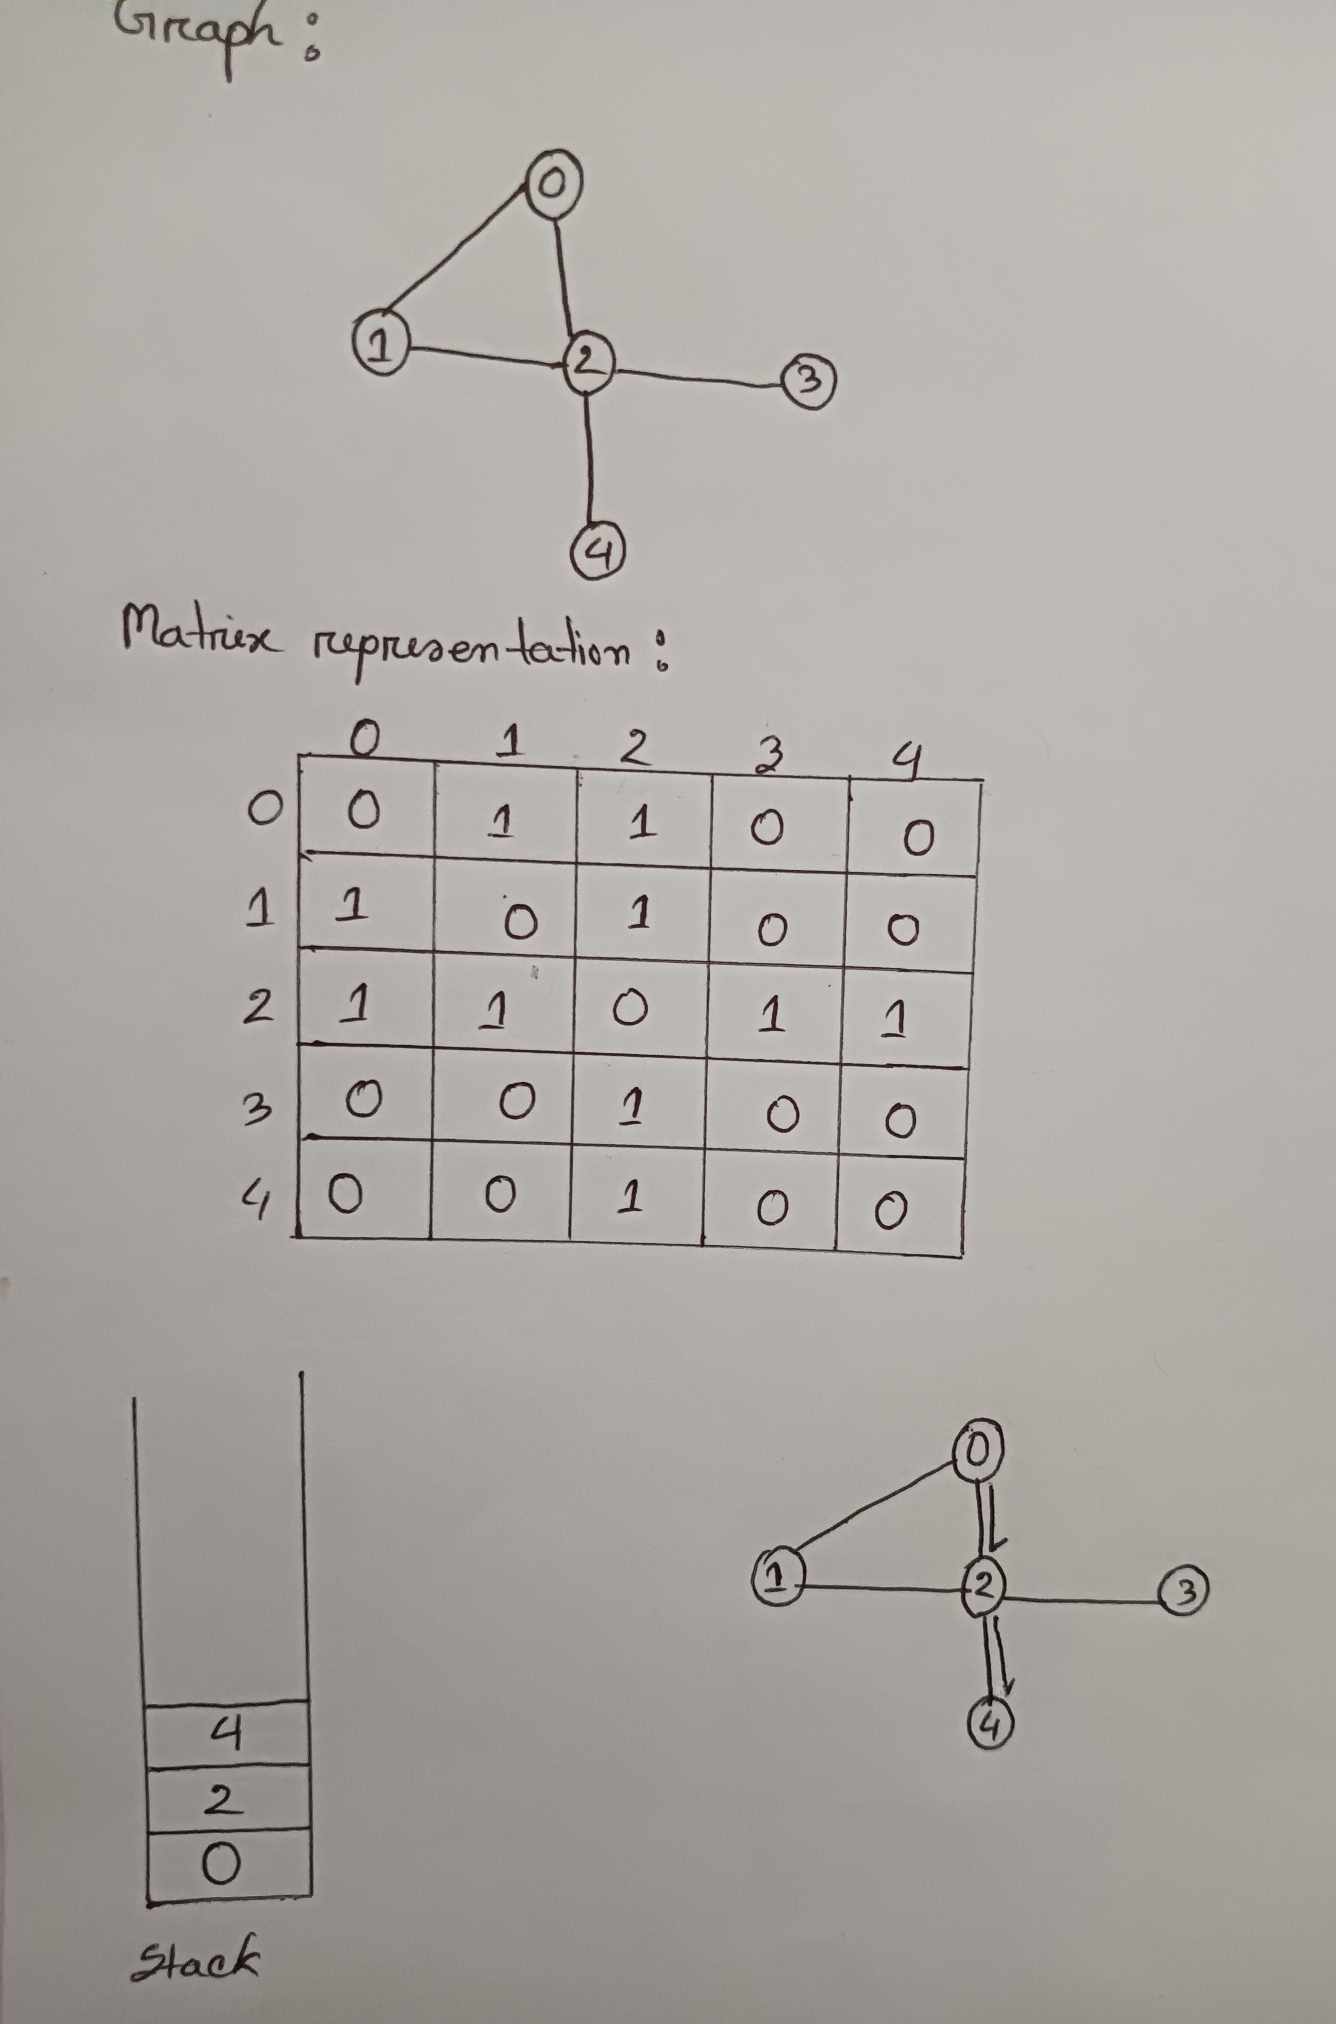 Graph :
0
1
2
3
4
Matrix representation :
0 1 2 3 4
0 0 1 1 0 0
1 1 0 1 0 0
2 1 1 0 1 1
3 0 0 1 0 0
4 0 0 1 0 0
0
1
2
3
4
4
2
0
Stack